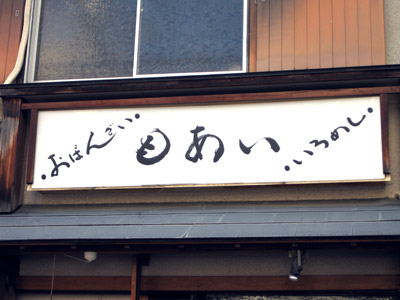 ・おばんざい・
もあい
・いろめし・